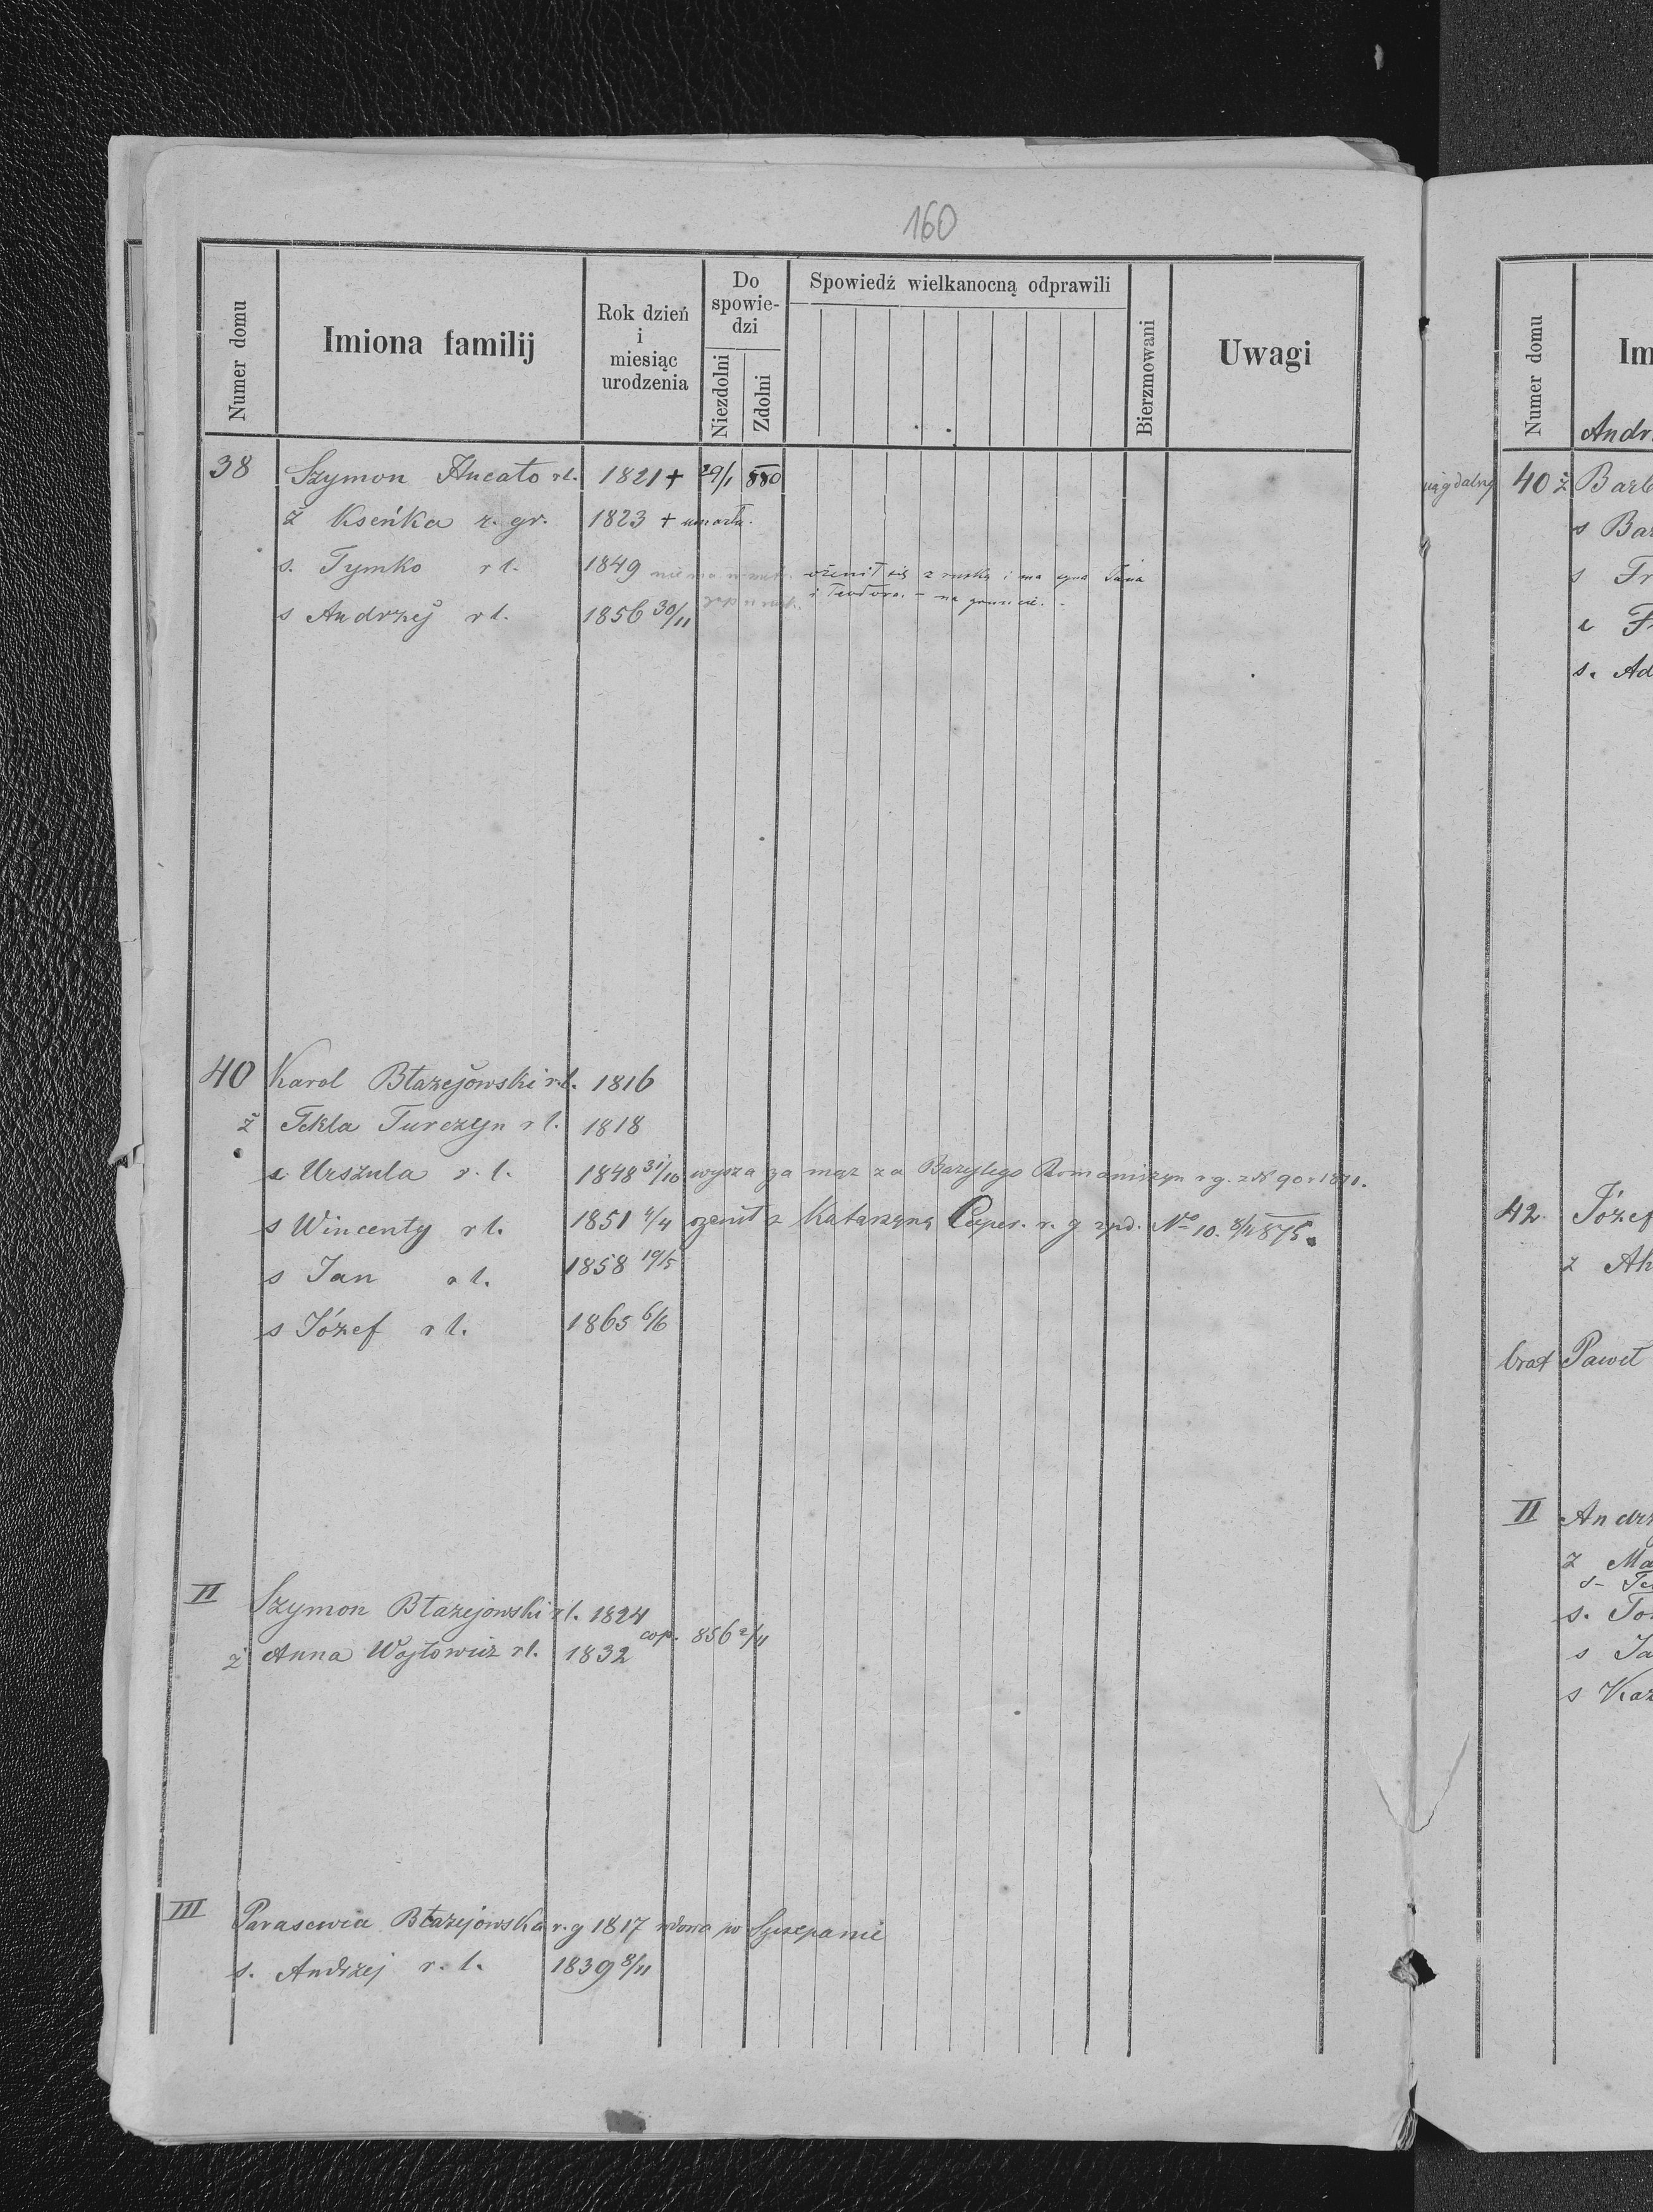 160
Numer domu
Imiona familij
Rok dzień i miesiąc urodzenia
Do spowiedzi
Niezdolni
Zdolni
Spowiedź wielkanocną odprawili
Bierzmowani
Uwagi
38 Szymon Hucało rl. 1821 + 29/1 880
ż Kseńka r. gr. 1823 + umarła.
s. Tymko rl. 1849 ożenił się z ruską i ma syna Jana
i Teodora. - na gruncie. -
s Andrzej rl. 1856 30/11
40 Karol Błażejowski r.l. 1816
ż Tekla Turczyn rl. 1818
c. Urszula r. l. 1848 31/10 wyszła za mąż za Bazylego Romaniszyn r g. z N 90 r 1870.
s Wincenty rl. 1851 4/4 ożenił z Katarzyną r. g zpd. No 10. 875.
s Jan rl. 1858 19/5
s Józef rl. 1865 6/6
II Szymon Błażejowski rl. 1824
cop. 856 2/11
ż Anna Wojtowicz rl. 1832
III Parascewia Błażejowska r. g 1817 wdowa po Szczepanie
s. Andrzej r. l. 1839 8/11
Numer domu
Im
Andr
40 ż Barb
s Bar
s Fr
c Fr
s. Ad
42 Józef
brat Paweł
II Andrz
ż Ma
s. To
s Ja
s Kaz